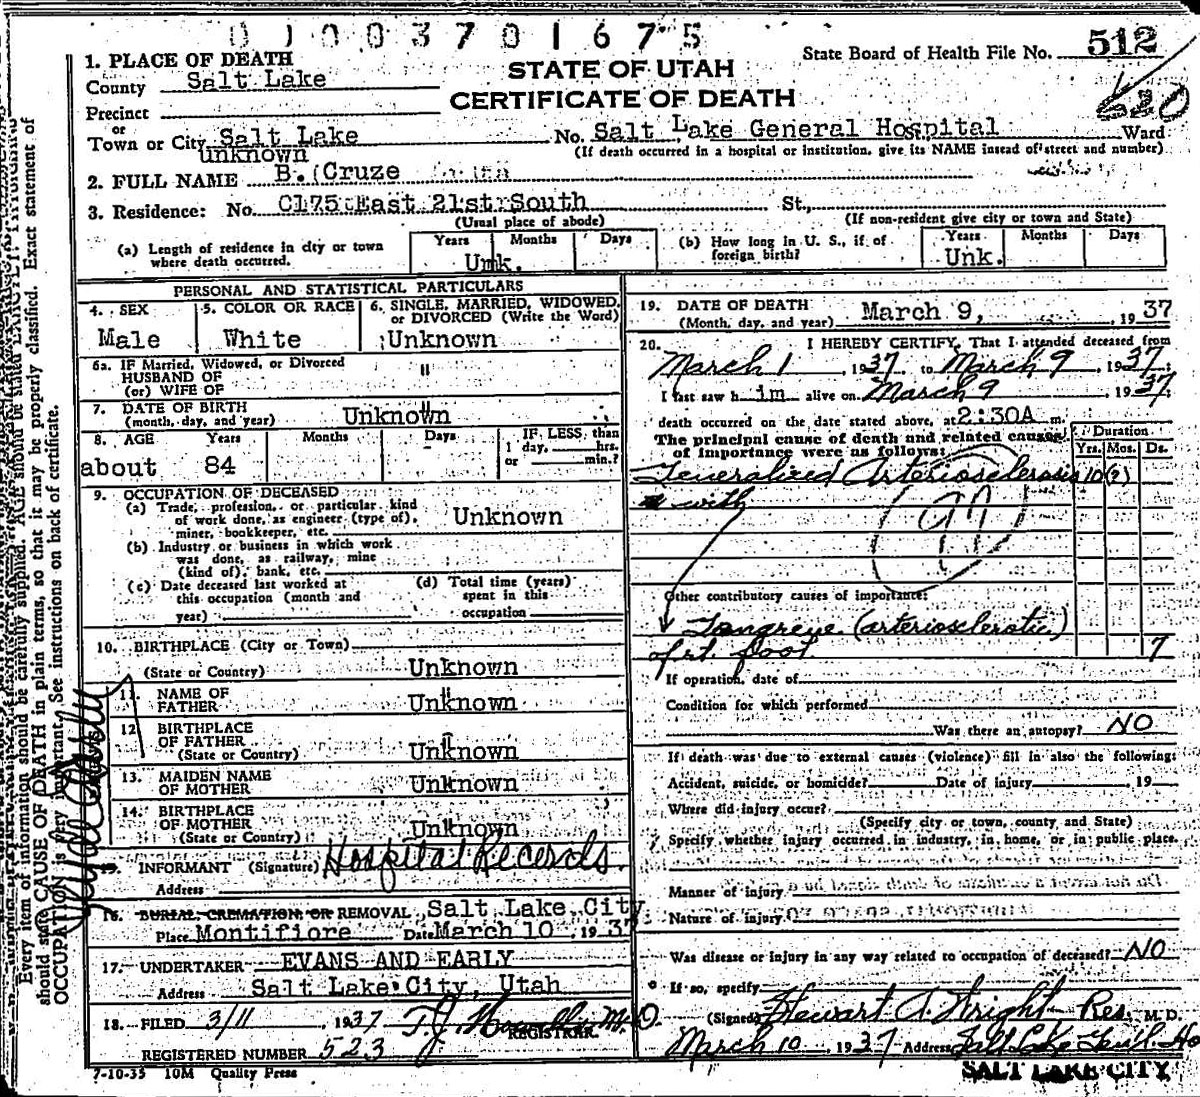 0 1 0 0 3 7 0 1 6 7 5
State Board of Health File No. 512
STATE OF UTAH
CERTIFICATE OF DEATH
1. PLACE OF DEATH
County Salt Lake
Precinct
or
Town or City Salt Lake No. Salt Lake General Hospital Ward
(If death occurred in a hospital or institution, give its NAME instead of street and number)
unknown
2. FULL NAME B. Cruze
3. Residence: No. C175 East 21st South St.,
(Usual place of abode) (If non-resident give city or town and State)
(a) Length of residence in city or town where death occurred. Years Months Days Unk.
(b) How long in U. S., if of foreign birth? Years Months Days Unk.
PERSONAL AND STATISTICAL PARTICULARS
4. SEX 5. COLOR OR RACE 6. SINGLE, MARRIED, WIDOWED, or DIVORCED (Write the Word)
Male White Unknown
6a. IF Married, Widowed, or Divorced
HUSBAND OF
(or) WIFE OF "
7. DATE OF BIRTH
(month, day, and year) Unknown
8. AGE Years Months Days IF LESS than
1 day, hrs.
or min.?
about 84
9. OCCUPATION OF DECEASED
(a) Trade, profession, or particular kind
of work done, as engineer (type of),
miner, bookkeeper, etc. Unknown
(b) Industry or business in which work
was done, as railway, mine
(kind of), bank, etc.
(c) Date deceased last worked at
this occupation (month and
year)
(d) Total time (years)
spent in this
occupation
10. BIRTHPLACE (City or Town)
(State or Country) Unknown
11. NAME OF
FATHER Unknown
12. BIRTHPLACE
OF FATHER
(State or Country) Unknown
13. MAIDEN NAME
OF MOTHER Unknown
14. BIRTHPLACE
OF MOTHER
(State or Country) Unknown
15. INFORMANT (Signature) Hospital Records.
Address
16. BURIAL, CREMATION, OR REMOVAL Salt Lake City
Place Montifiore Date March 10, 1937
17. UNDERTAKER EVANS AND EARLY
Address Salt Lake City, Utah
18. FILED 3/11, 1937 M.D.
REGISTRAR.
REGISTERED NUMBER 523
7-10-35 10M Quality Press
19. DATE OF DEATH
(Month, day, and year) March 9, 1937
20. I HEREBY CERTIFY, That I attended deceased from
March 1 1937 to March 9 1937
I last saw him alive on March 9, 1937
death occurred on the date stated above, at 2:30A m.
The principal cause of death and related causes
of importance were as follows:
Duration
Yrs. Mos. Ds.
Generalized Arteriosclerosis 10 (?)
with
97
Other contributory causes of importance:
Gangrene (arteriosclerotic)
of rt. foot 7
If operation, date of
Condition for which performed
Was there an autopsy? NO
If death was due to external causes (violence) fill in also the following:
Accident, suicide, or homicide? Date of injury , 19
Where did injury occur?
(Specify city or town, county and State)
Specify whether injury occurred in industry, in home, or in public place.
Manner of injury
Nature of injury
Was disease or injury in any way related to occupation of deceased? NO
If so, specify
(Signed) Stewart A. Wright Res., M. D.
March 10, 1937 Address Salt Lake Genl. Ho
SALT LAKE CITY
Every item of information should be carefully supplied. AGE should be stated EXACTLY.
should state CAUSE OF DEATH in plain terms, so that it may be properly classified. Exact statement of
OCCUPATION is very important. See instructions on back of certificate.